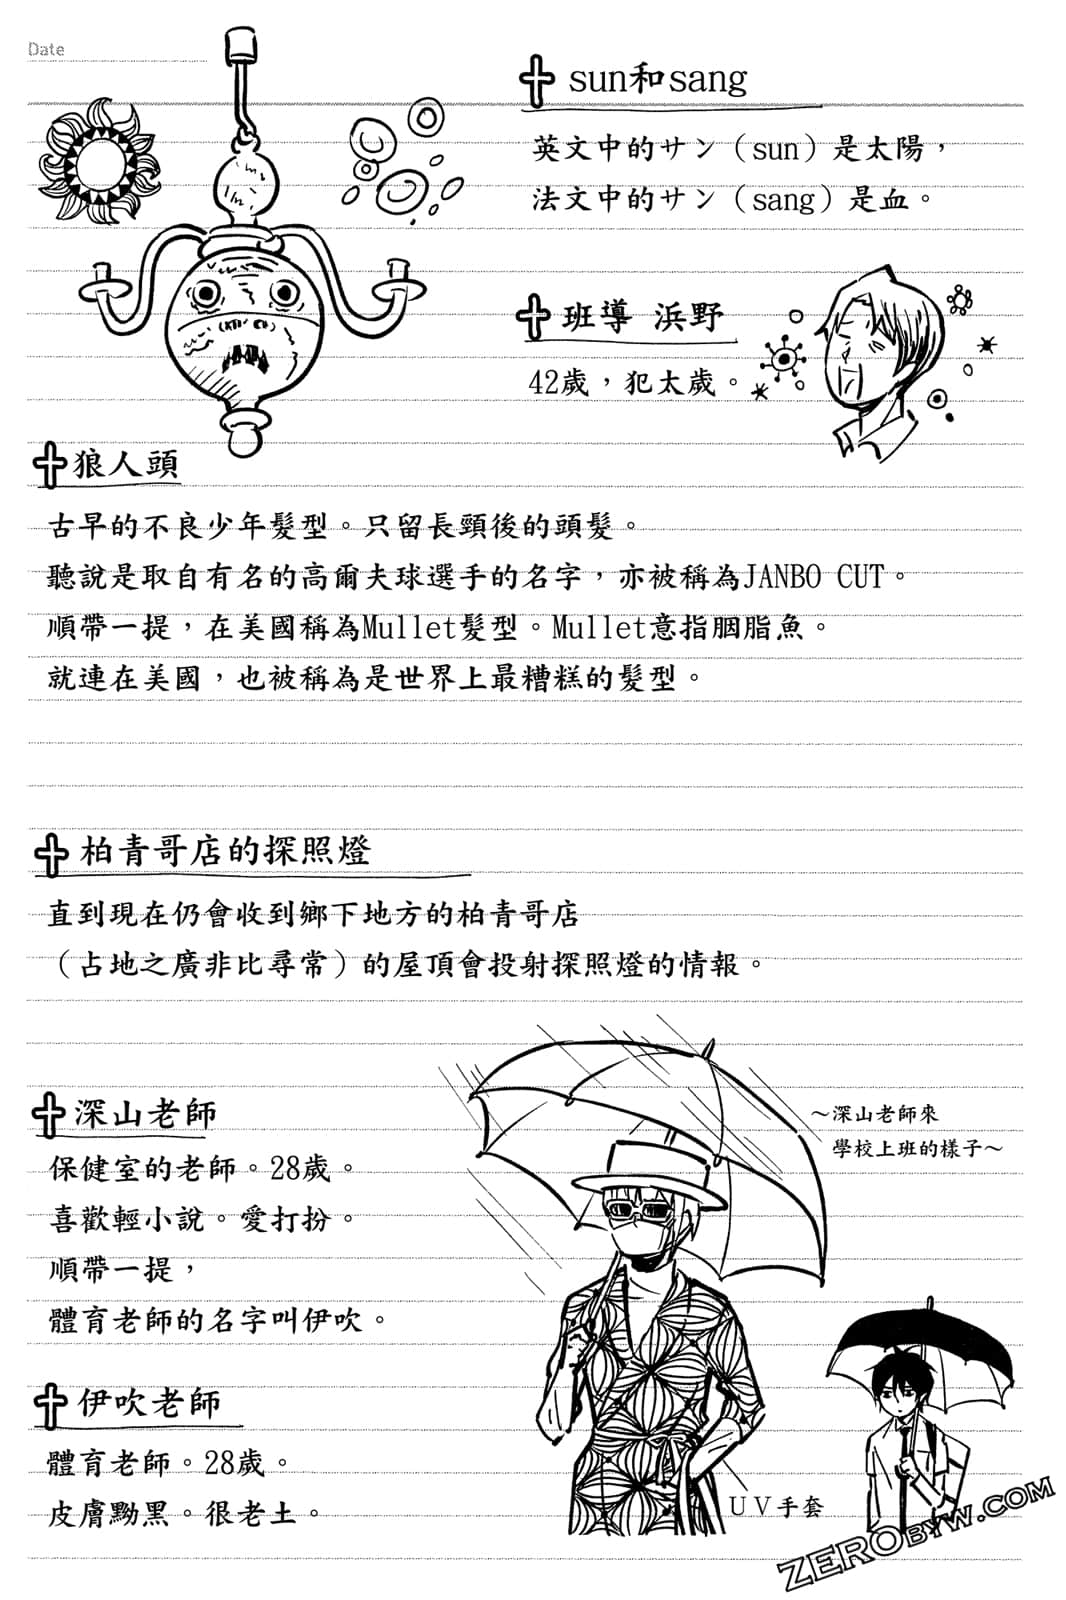 Date
sun和sang
英文中的サン（sun）是太陽，
法文中的サン（sang）是血。
班導 浜野
42歲，犯太歲。
狼人頭
古早的不良少年髮型。只留長頸後的頭髮。
聽說是取自有名的高爾夫球選手的名字，亦被稱為JANBO CUT。
順帶一提，在美國稱為Mullet髮型。Mullet意指胭脂魚。
就連在美國，也被稱為是世界上最糟糕的髮型。
柏青哥店的探照燈
直到現在仍會收到鄉下地方的柏青哥店
（占地之廣非比尋常）的屋頂會投射探照燈的情報。
深山老師
保健室的老師。28歲。
喜歡輕小說。愛打扮。
順帶一提，
體育老師的名字叫伊吹。
～深山老師來
學校上班的樣子～
伊吹老師
體育老師。28歲。
皮膚黝黑。很老土。
UV手套
ZEROBYW.COM